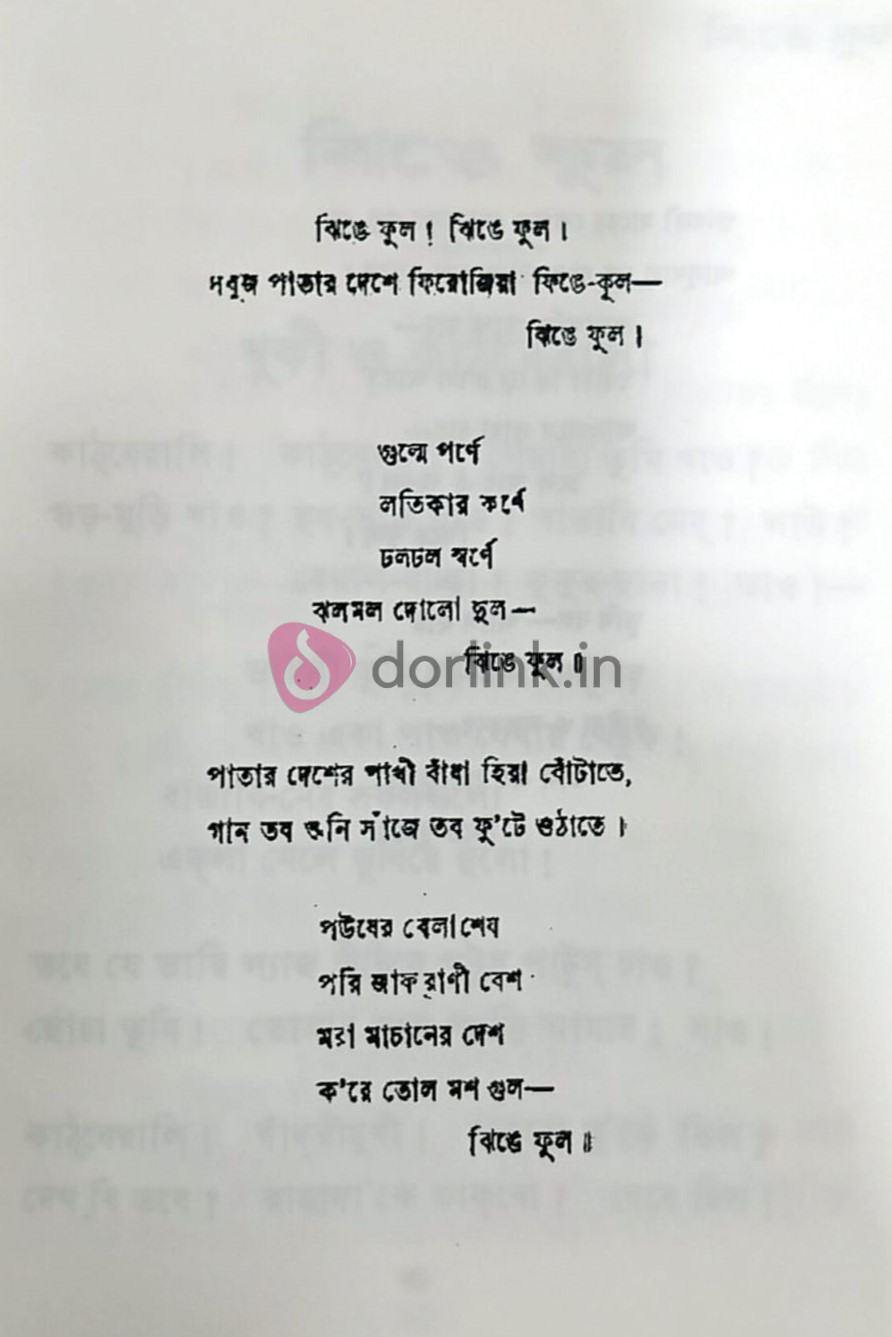 ঝিঙে ফুল! ঝিঙে ফুল।
সবুজ পাতার দেশে ফিরোজিয়া ফিঙে-কুল—
ঝিঙে ফুল।
গুল্মে পর্ণে
লতিকার কর্ণে
ঢলঢল স্বর্ণে
ঝলমল দোলো দুল—
ঝিঙে ফুল॥
dorlink.in
পাতার দেশের পাখী বাঁধা হিয়া বোঁটাতে,
গান তব শুনি সাঁজে তব ফু'টে ওঠাতে।
পউষের বেলাশেষ
পরি জাফরাণী বেশ
মরা মাচানের দেশ
ক'রে তোল মশগুল—
ঝিঙে ফুল॥